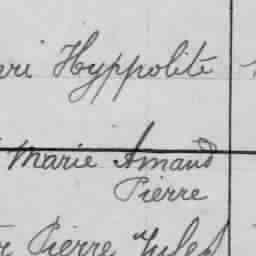 ri Hyppolite
Marie Amand
Pierre
Pierre Jules